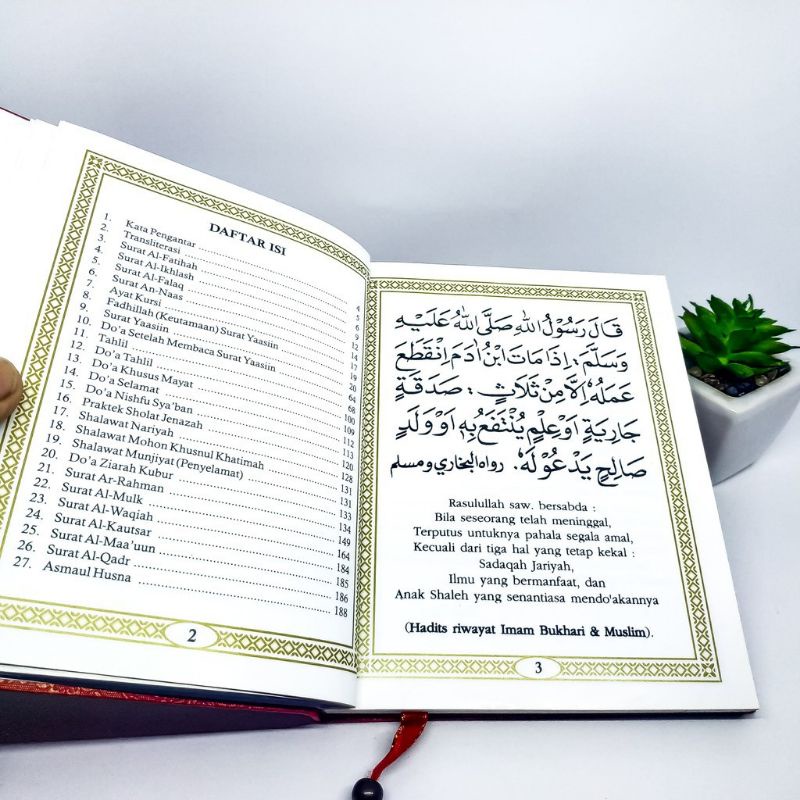 DAFTAR ISI
1. Kata Pengantar 4
2. Transliterasi 5
3. Surat Al-Fatihah 6
4. Surat Al-Ikhlash 9
5. Surat Al-Falaq 12
6. Surat An-Naas 14
7. Ayat Kursi 17
8. Fadhillah (Keutamaan) Surat Yaasiin 19
9. Surat Yaasiin 20
10. Do'a Setelah Membaca Surat Yaasiin 64
11. Tahlil 68
12. Do'a Tahlil 100
13. Do'a Khusus Mayat 109
14. Do'a Selamat 112
15. Do'a Nishfu Sya'ban 113
16. Praktek Sholat Jenazah 120
17. Shalawat Nariyah 128
18. Shalawat Mohon Khusnul Khatimah 131
19. Shalawat Munjiyat (Penyelamat) 131
20. Do'a Ziarah Kubur 133
21. Surat Ar-Rahman 134
22. Surat Al-Mulk 149
23. Surat Al-Waqiah 164
24. Surat Al-Kautsar 184
25. Surat Al-Maa'uun 185
26. Surat Al-Qadr 186
27. Asmaul Husna 188
2
قَالَ رَسُوْلُ اللهِ صَلَّى اللهُ عَلَيْهِ
وَسَلَّمَ : اِذَا مَاتَ ابْنُ اٰدَمَ اِنْقَطَعَ
عَمَلُهُ اِلَّا مِنْ ثَلَاثٍ : صَدَقَةٍ
جَارِيَةٍ اَوْ عِلْمٍ يُنْتَفَعُ بِهِ اَوْ وَلَدٍ
صَالِحٍ يَدْعُوْلَهُ. رواه البخاري ومسلم
Rasulullah saw. bersabda :
Bila seseorang telah meninggal,
Terputus untuknya pahala segala amal,
Kecuali dari tiga hal yang tetap kekal :
Sadaqah Jariyah,
Ilmu yang bermanfaat, dan
Anak Shaleh yang senantiasa mendo'akannya
(Hadits riwayat Imam Bukhari & Muslim).
3